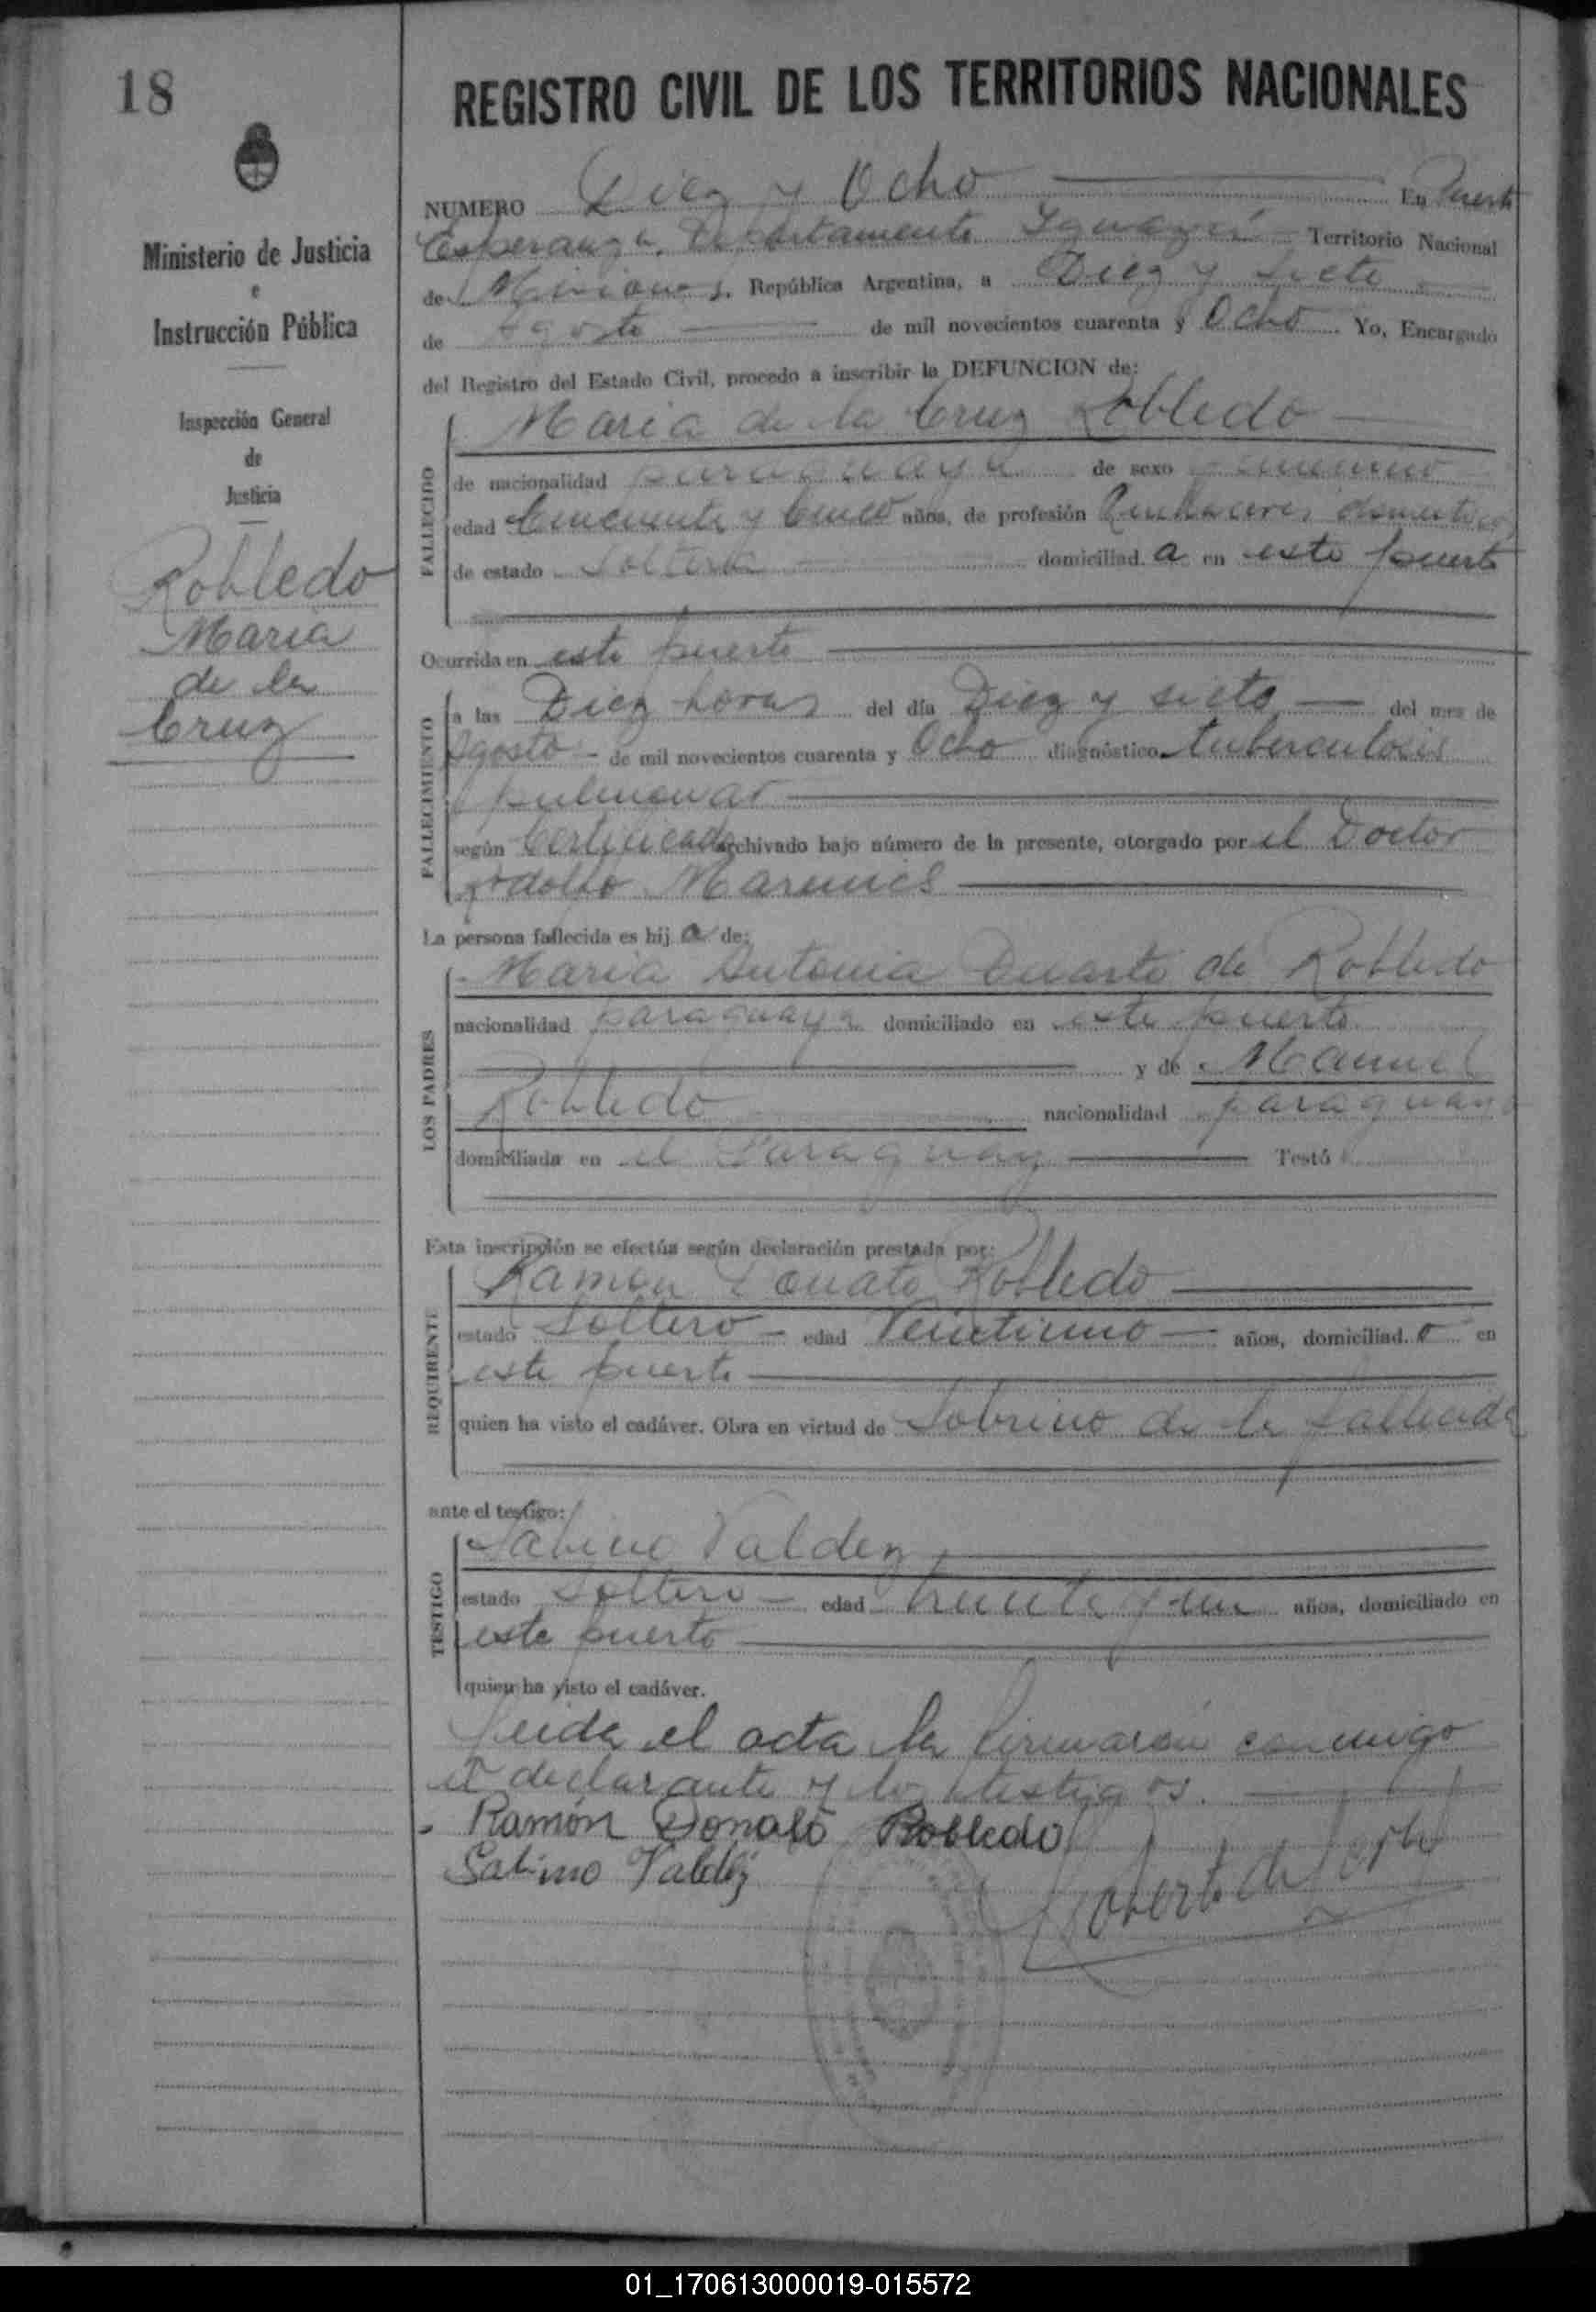 18
Ministerio de Justicia
e
Instrucción Pública
Inspección General
de
Justicia
Robledo
Maria
de la
Cruz
REGISTRO CIVIL DE LOS TERRITORIOS NACIONALES
NUMERO Diez y Ocho En Puerto
Esperanza, Departamento Iguazú Territorio Nacional
de Misiones, República Argentina, a Diez y siete
de Agosto de mil novecientos cuarenta y Ocho. Yo, Encargado
del Registro del Estado Civil, procedo a inscribir la DEFUNCION de:
FALLECIDO
Maria de la Cruz Robledo
de nacionalidad paraguaya de sexo femenino
edad Cincuenta y Cinco años, de profesión Quehaceres domesticos
de estado Soltera domiciliad.a en este puerto
Ocurrida en este puerto
FALLECIMIENTO
a las Diez horas del día Diez y siete del mes de
Agosto de mil novecientos cuarenta y Ocho diagnóstico tuberculosis
pulmonar
según Certificado archivado bajo número de la presente, otorgado por el Doctor
Rodolfo
La persona fallecida es hij a de:
LOS PADRES
Maria Antonia Duarte de Robledo
nacionalidad paraguaya domiciliado en este puerto
y de Manuel
Robledo nacionalidad paraguaya
domiciliada en el Paraguay Testó
Esta inscripción se efectúa según declaración prestada por:
REQUIRENTE
Ramon Donato Robledo
estado Soltero edad Veintiuno años, domiciliad.o en
este puerto
quien ha visto el cadáver. Obra en virtud de Sobrino de la fallecida
ante el testigo:
TESTIGO
Sabino Valdez
estado Soltero edad treinta y un años, domiciliado en
este puerto
quien ha visto el cadáver.
Leida el acta la firmarón conmigo
el declarante y los testigos.
Ramón Donato Robledo
Sabino Valdéz
01_170613000019-015572